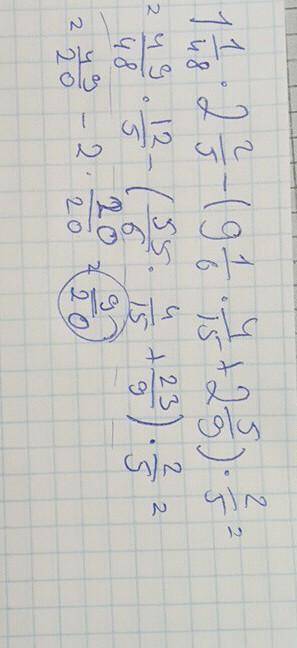 1 1/48 · 2 2/5 - (9 1/6 · 4/15 + 2 5/9) · 2/5 =
= 49/48 · 12/5 - (55/6 · 4/15 + 23/9) · 2/5 =
= 49/20 - 2 · 20/20 = 9/20